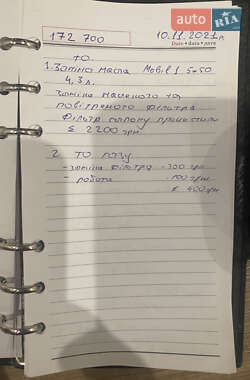 auto RIA
172 700
10.11.2021р
Date • data • дата
ТО
1. Заміна масла Mobil 1 5w50
4,3 л.
Заміна масляного та
повітряного фільтра
Фільтр салону
Σ 2200 грн.
2. ТО газу
- заміна фільтра - 300 грн
- робота 100 грн
Σ 400 грн